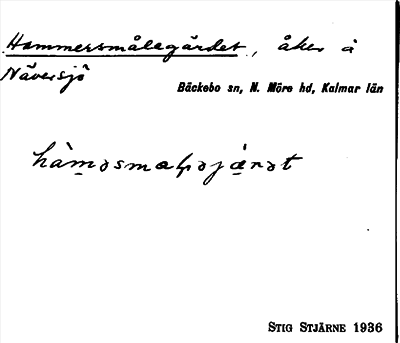 Hammersmålagärdet, åker å
Näversjö
Bäckebo sn, N. Möre hd, Kalmar län
STIG STJÄRNE 1936